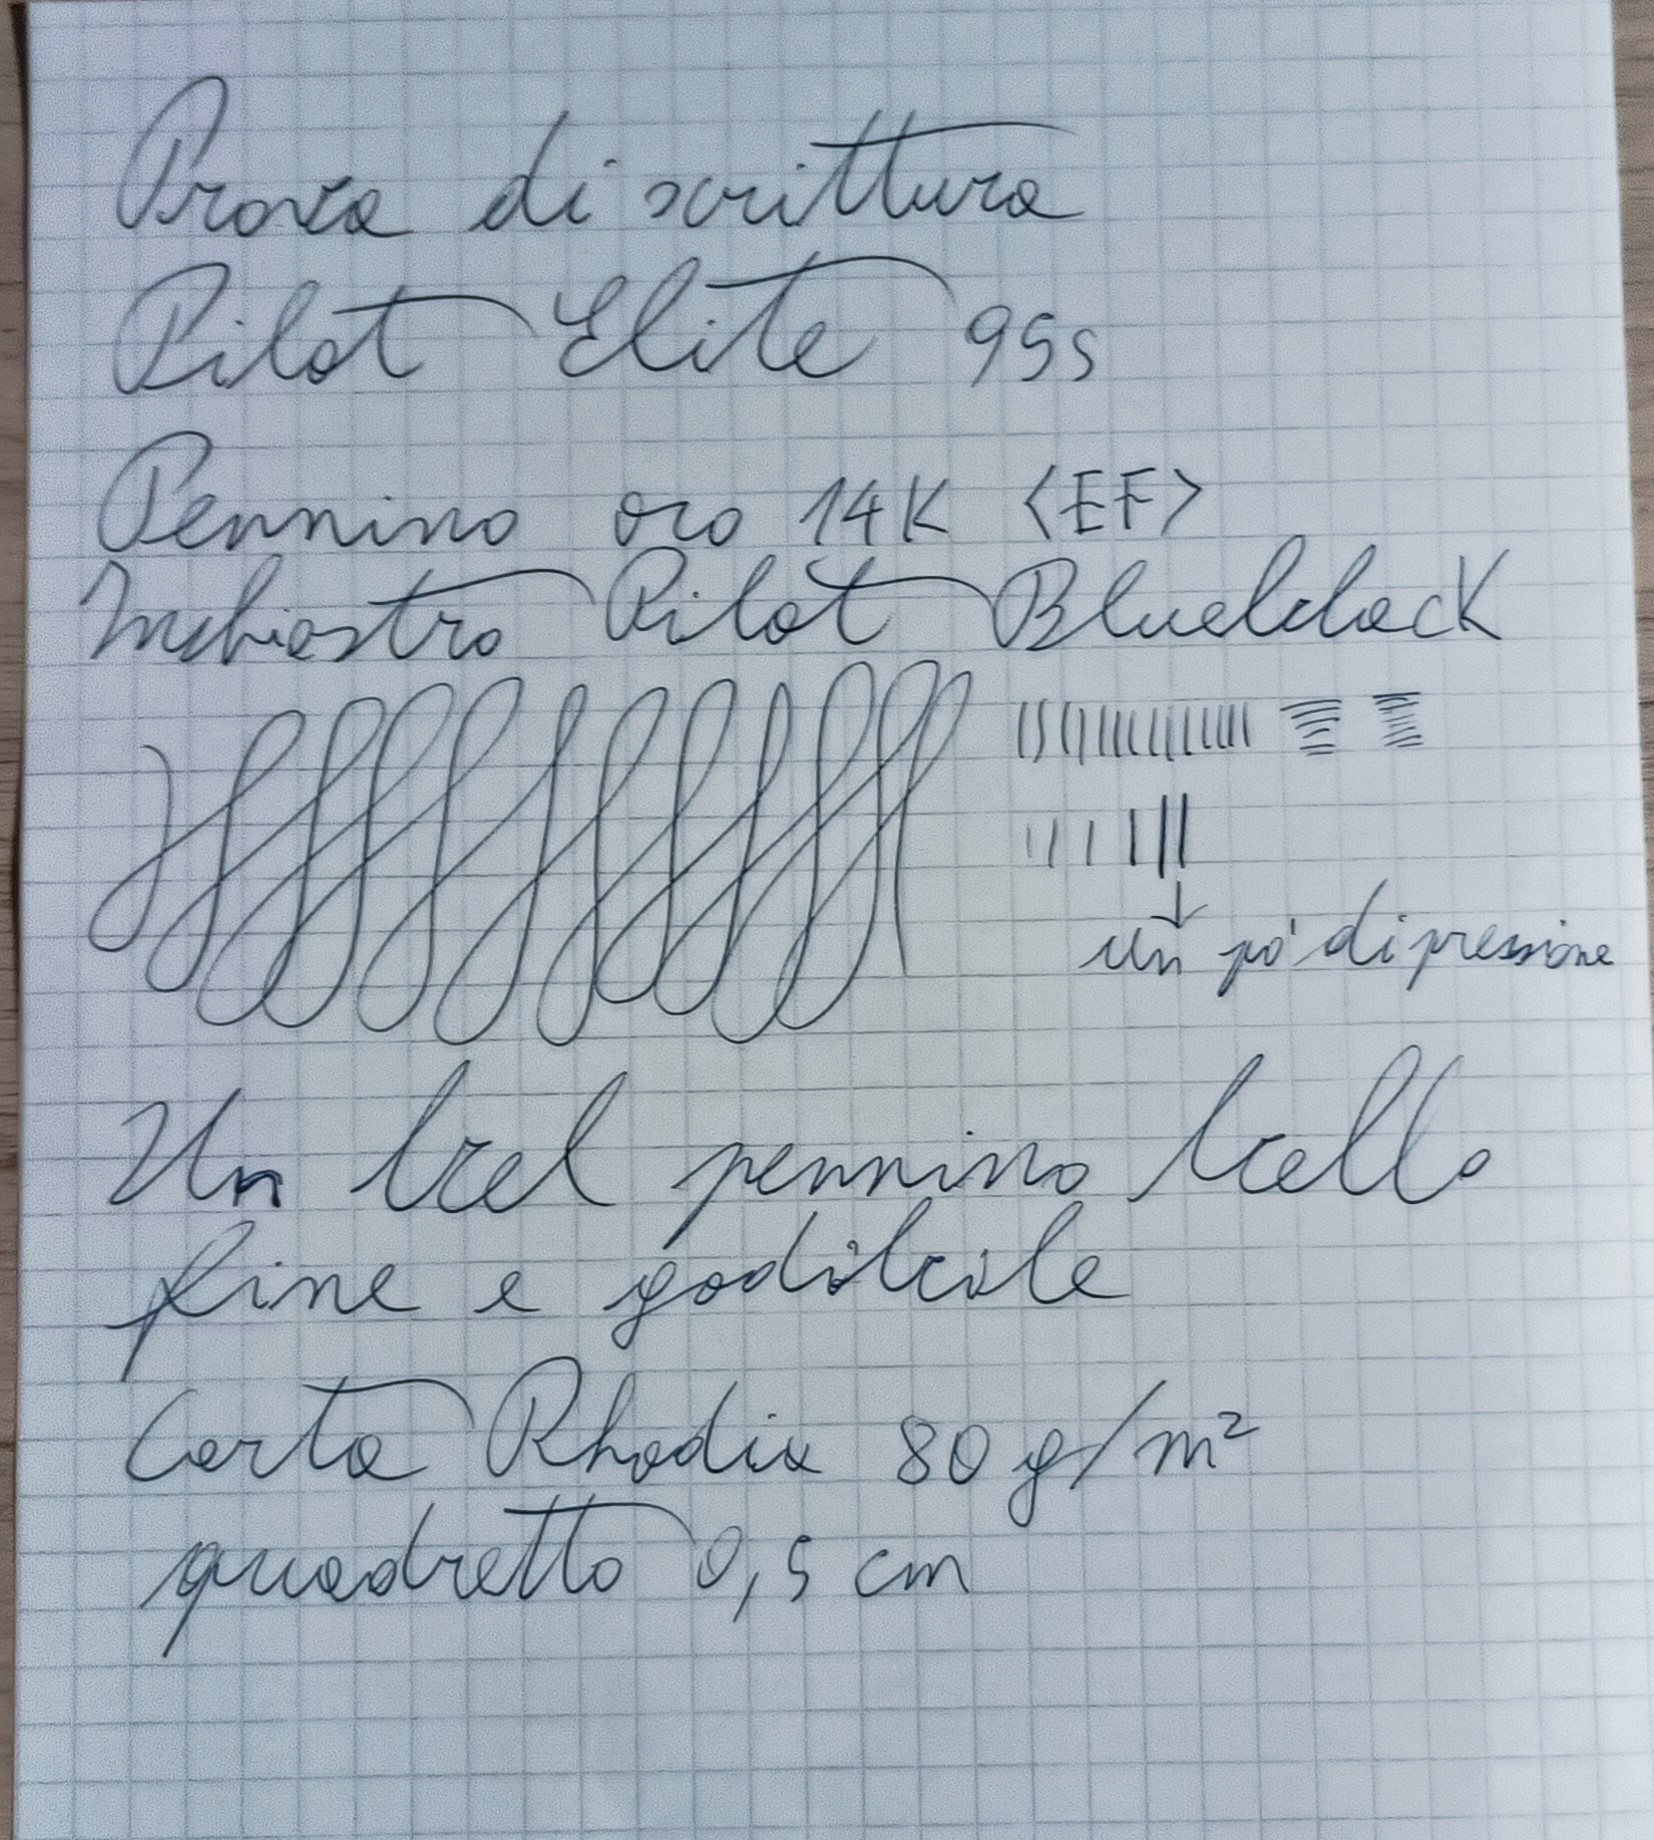 Prova di scrittura
Pilot Elite 95s
Pennino oro 14K <EF>
Inchiostro Pilot Blueblack
un pò di pressione
Un bel pennino bello
fine e godibile
Carta Rhodia 80 g/m²
quadretto 0,5 cm